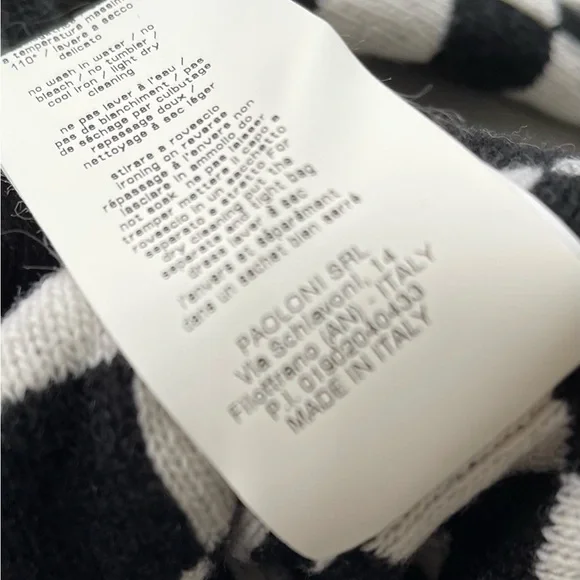 a temperatura massima
110° / lavare a secco
delicato
no wash in water / no
bleach / no tumbler /
cool iron / light dry
cleaning
ne pas laver à l'eau /
pas de blanchiment / pas
de séchage par culbutage
repassage doux /
nettoyage à sec léger
stirare a rovescio
ironing on reverse
répassage à l'envers non
lasciare in ammollo do
not soak ne pas laisser
tremper mettere il capo a
rovescio in un sacchetto
separato e chiuso For
dry cleaning put the
separate and light bag
dress laver à sec
l'envers et séparément
dans un sachet bien serré
PAOLONI SRL
Via Schiavoni, 14
Filottrano (AN) - ITALY
P.I. 01902040433
MADE IN ITALY